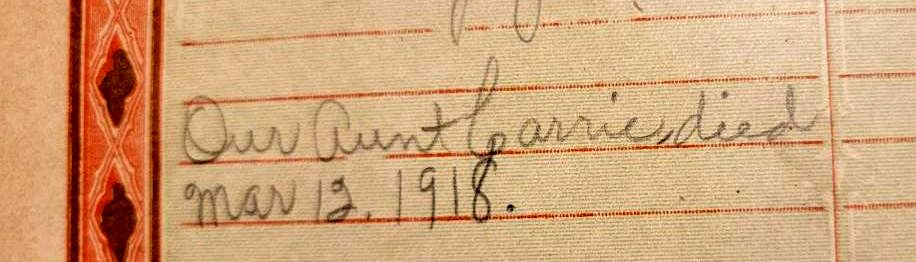 Our Aunt Carrie died
Mar 12. 1918.